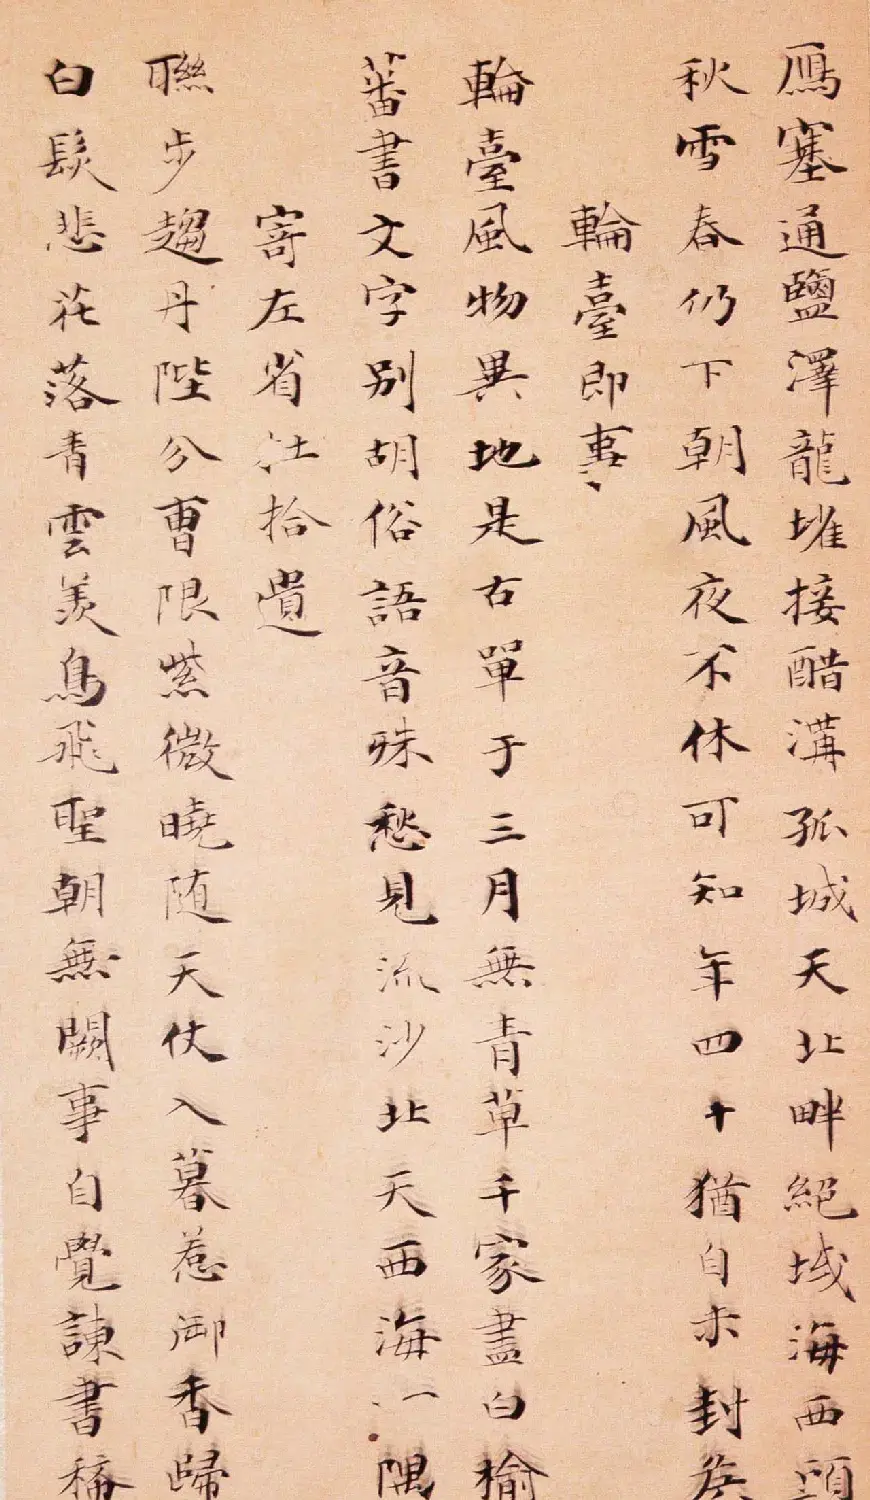 雁塞通鹽澤龍堆接醋溝孤城天北畔絕域海西頭
秋雪春仍下朝風夜不休可知年四十猶自未封侯
輪臺即事
輪臺風物異地是古單于三月無青草千家盡白榆
蕃書文字別胡俗語音殊愁見流沙北天西海一隅
寄左省杜拾遺
聯步趨丹陛分曹限紫微曉随天仗入暮惹御香歸
白髮悲花落青雲羨鳥飛聖朝無闕事自覺諫書稀